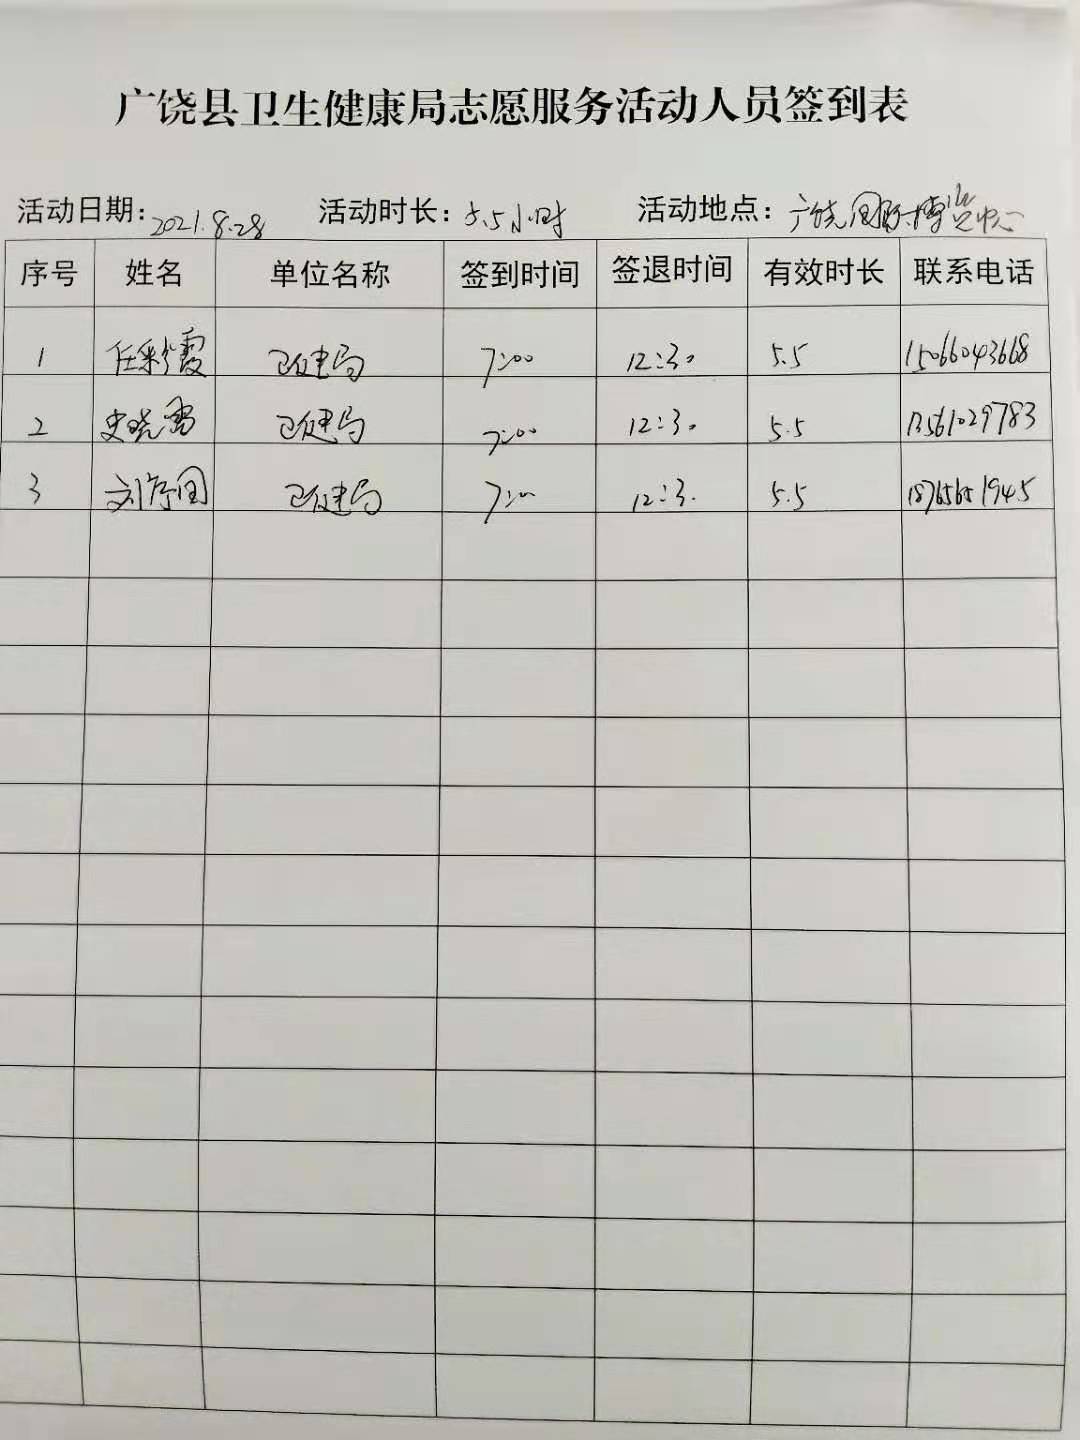 广饶县卫生健康局志愿服务活动人员签到表
活动日期：2021.8.28 活动时长：5.5小时 活动地点：广饶国际博览中心
序号 姓名 单位名称 签到时间 签退时间 有效时长 联系电话
1 任彩霞 卫健局 7:00 12:30 5.5 15066043668
2 史晓雷 卫健局 7:00 12:30 5.5 13561029783
3 刘存国 卫健局 7:00 12:30 5.5 18765651945